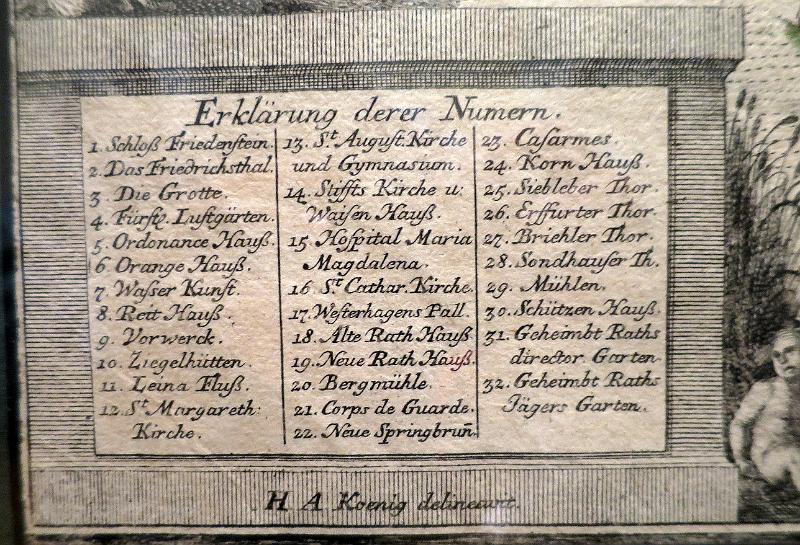 Erklärung derer Numern.
1. Schloß Friedenstein.
2. Das Friedrichsthal.
3. Die Grotte.
4. Fürstl. Lustgärten.
5. Ordonance Hauß.
6. Orange Hauß.
7. Waßer Kunst.
8. Reit Hauß.
9. Vorwerck.
10. Ziegelhütten.
11. Leina Fluß.
12. St. Margareth:
Kirche.
13. St. August. Kirche
und Gymnasium.
14. Stiffts Kirche u:
Waisen Hauß.
15 Hospital Maria
Magdalena.
16 St. Cathar. Kirche.
17. Westerhagens Pall.
18. Alte Rath Hauß
19. Neue Rath Hauß.
20. Bergmühle.
21. Corps de Guarde.
22. Neue Springbruñ.
23. Casarmes.
24. Korn Hauß.
25. Siebleber Thor.
26. Erffurter Thor.
27. Briehler Thor.
28. Sondhauser Th.
29. Mühlen.
30. Schützen Hauß.
31. Geheimbt Raths
director Garten
32. Geheimbt Raths
Jägers Garten.
H A Koenig delineavit.